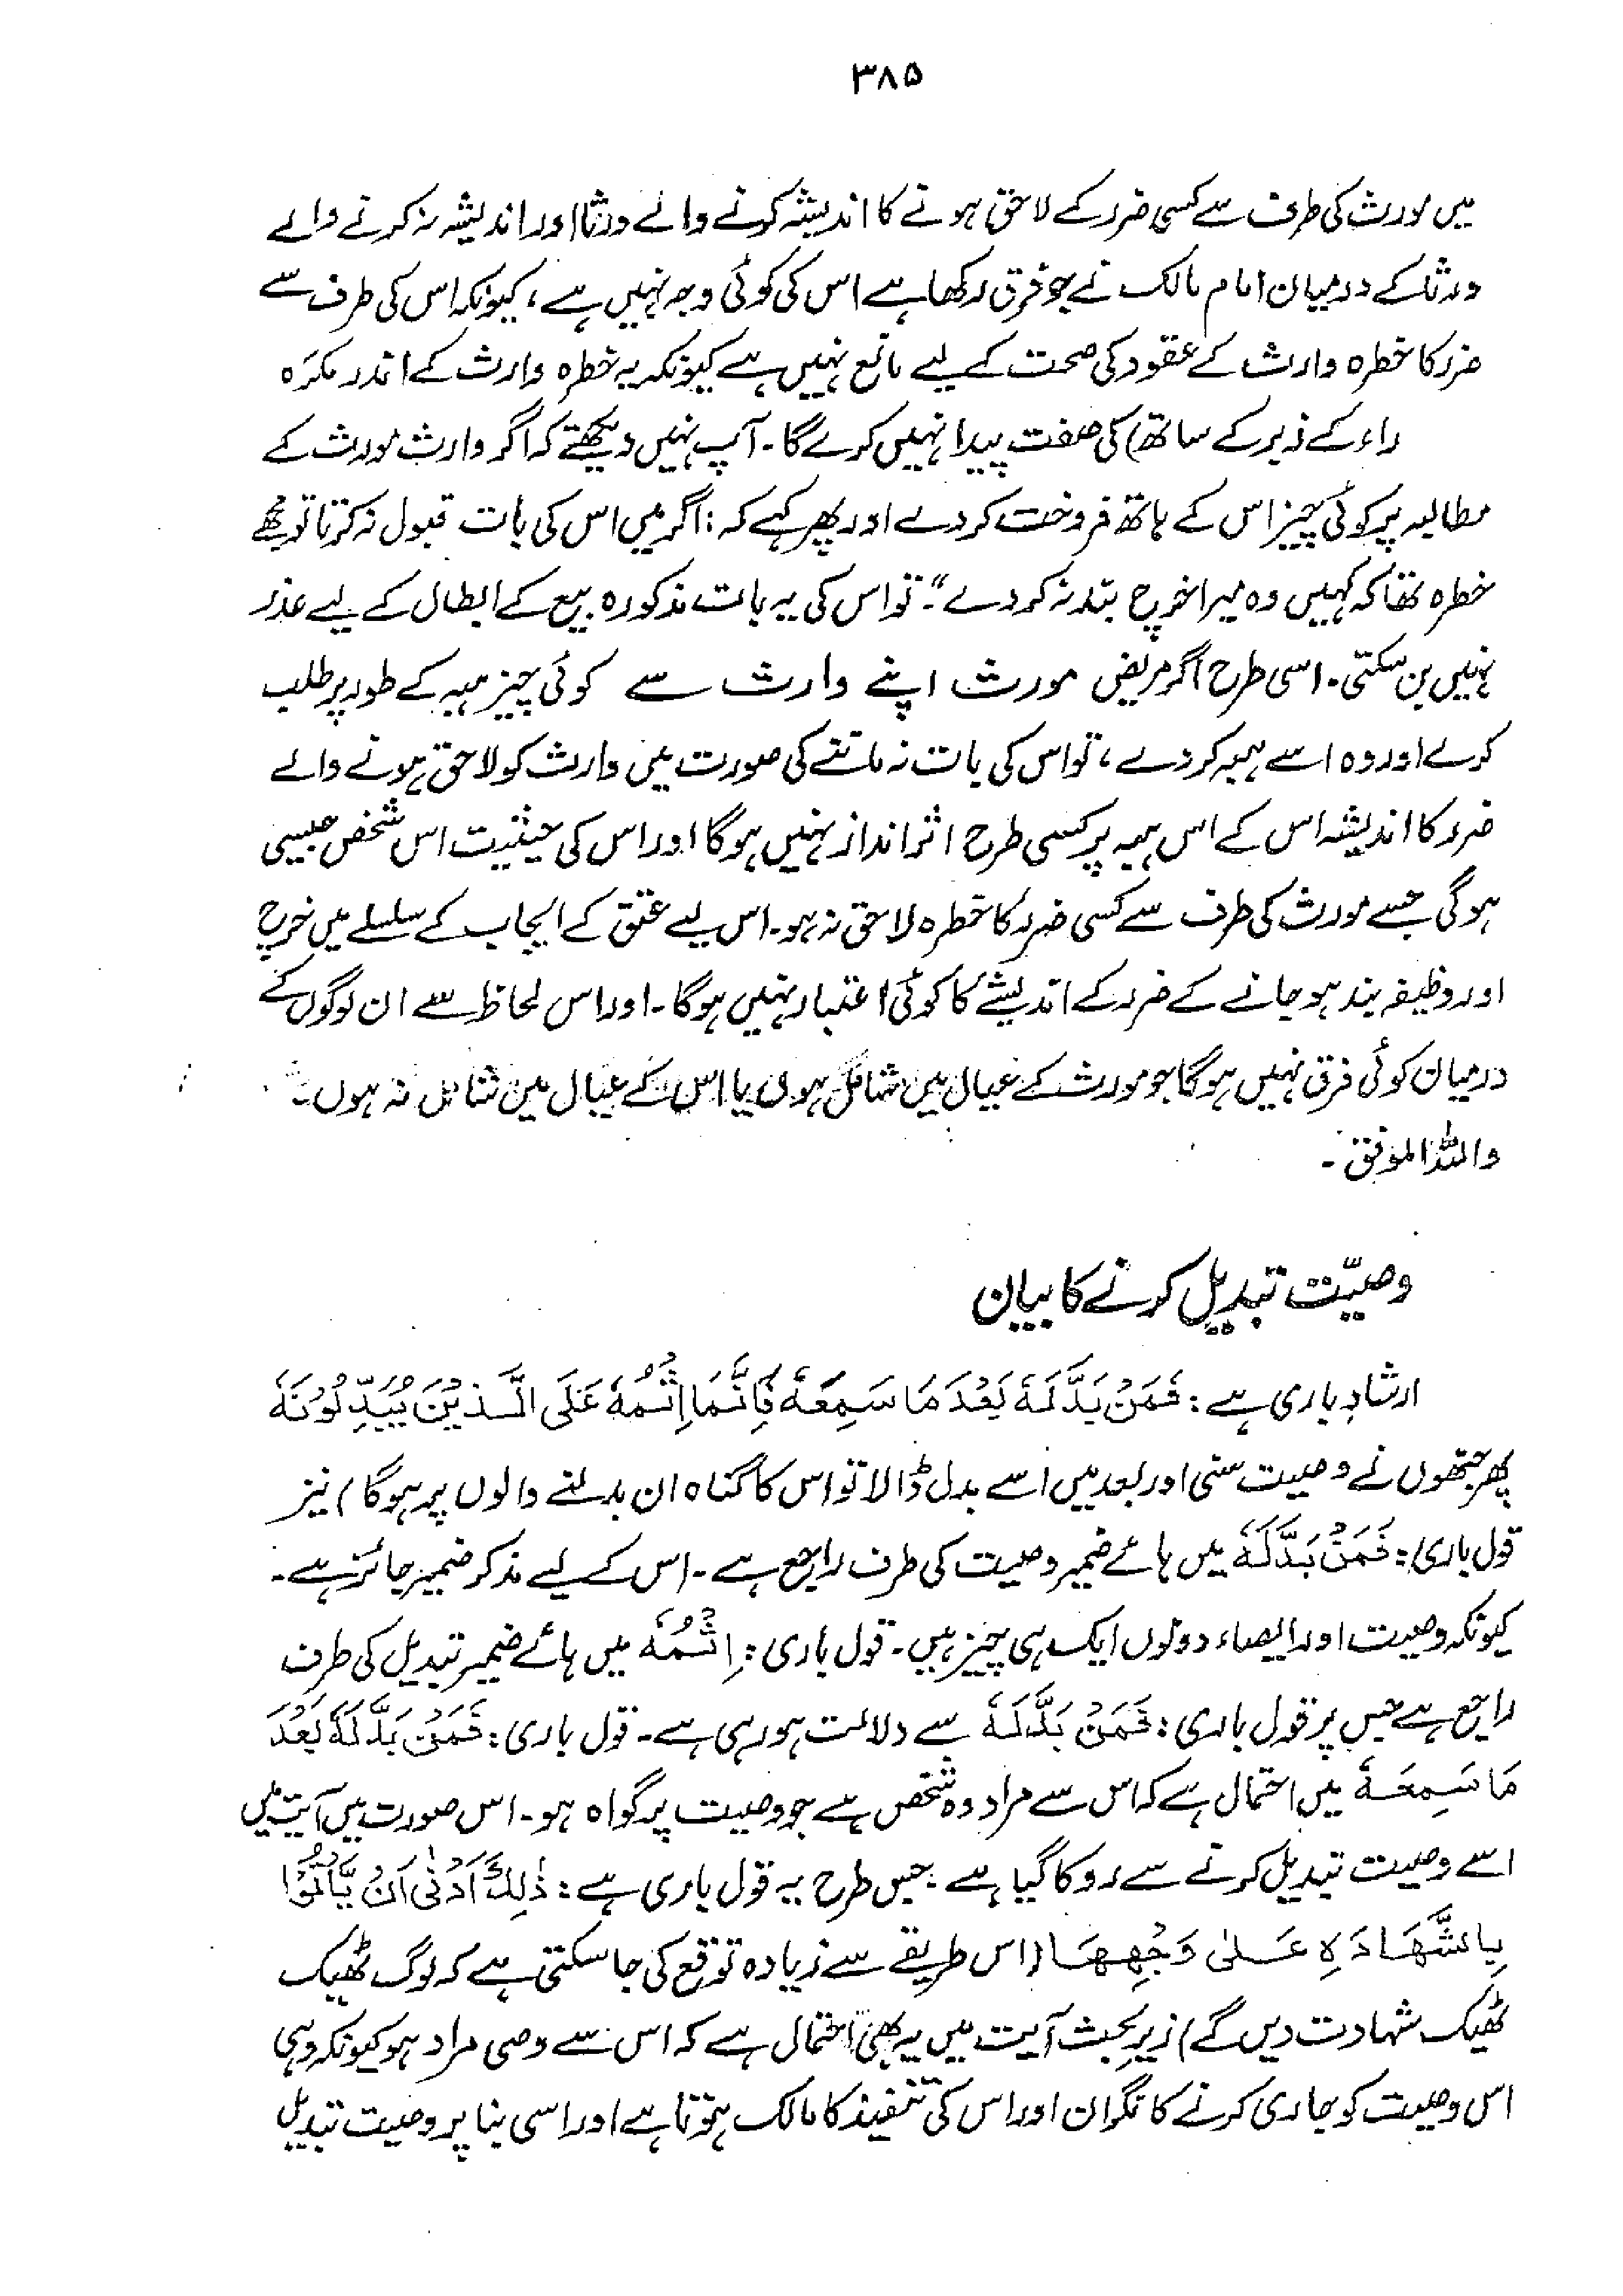 ۳۸۵
میں مورث کی طرف سے کسی ضرر کے لاحق ہونے کا اندیشہ کرنے والے ورثا اور اندیشہ نہ کرنے والے
ورثا کے درمیان امام مالک نے جو فرق رکھا ہے اس کی کوئی وجہ نہیں ہے، کیونکہ اس کی طرف سے
ضرر کا خطرہ وارث کے عقود کی صحت کے لیے مانع نہیں ہے کیونکہ یہ خطرہ وارث کے اندر مکرَہ
راء کے زبر کے ساتھ) کی صفت پیدا نہیں کرے گا۔ آپ نہیں دیکھتے کہ اگر وارث مورث کے
مطالبہ پر کوئی چیز اس کے ہاتھ فروخت کر دے اور پھر کہے کہ: اگر میں اس کی بات قبول نہ کرتا تو مجھے
خطرہ تھا کہ کہیں وہ میرا خرچ بند نہ کر دے"۔ تو اس کی یہ بات مذکورہ بیع کے ابطال کے لیے عذر
نہیں بن سکتی۔ اسی طرح اگر مریض مورث اپنے وارث سے کوئی چیز ہبہ کے طور پر طلب
کرے اور وہ اسے ہبہ کر دے، تو اس کی بات نہ ماننے کی صورت میں وارث کو لاحق ہونے والے
ضرر کا اندیشہ اس کے اس ہبہ پر کسی طرح اثر انداز نہیں ہوگا اور اس کی حیثیت اس شخص جیسی
ہوگی جسے مورث کی طرف سے کسی ضرر کا خطرہ لاحق نہ ہو۔ اس لیے عتق کے ایجاب کے سلسلے میں خرچ
اور وظیفہ بند ہو جانے کے ضرر کے اندیشے کا کوئی اعتبار نہیں ہوگا۔ اور اس لحاظ سے ان لوگوں کے
درمیان کوئی فرق نہیں ہوگا جو مورث کے عیال میں شامل ہوں یا اس کے عیال میں شامل نہ ہوں۔
واللہ الموفق۔
وصیّت تبدیل کرنے کا بیان
ارشادِ باری ہے: فَمَنْ بَدَّلَهٗ بَعْدَ مَا سَمِعَهٗ فَاِنَّمَا اِثْمُهٗ عَلَى الَّذِيْنَ يُبَدِّلُوْنَهٗ
پھر جنھوں نے وصیت سنی اور بعد میں اسے بدل ڈالا تو اس کا گناہ ان بدلنے والوں پر ہوگا) نیز
قول باری: فَمَنْ بَدَّلَهٗ میں ہائے ضمیر وصیت کی طرف راجع ہے۔ اس کے لیے مذکر ضمیر جائز ہے۔
کیونکہ وصیت اور ایصاء دونوں ایک ہی چیز ہیں۔ قول باری: اِثْمُهٗ میں ہائے ضمیر تبدیل کی طرف
راجع ہے جس پر قول باری: فَمَنْ بَدَّلَهٗ سے دلالت ہو رہی ہے۔ قول باری: فَمَنْ بَدَّلَهٗ بَعْدَ
مَا سَمِعَهٗ میں احتمال ہے کہ اس سے مراد وہ شخص ہے جو وصیت پر گواہ ہو۔ اس صورت میں آیت میں
اسے وصیت تبدیل کرنے سے روکا گیا ہے۔ جس طرح یہ قول باری ہے: ذٰلِكَ اَدْنٰى اَنْ يَّاْتُوْا
بِالشَّهَادَةِ عَلٰى وَجْهِهَا (اس طریقے سے زیادہ توقع کی جا سکتی ہے کہ لوگ ٹھیک
ٹھیک شہادت دیں گے) زیرِ بحث آیت میں یہ بھی احتمال ہے کہ اس سے وصی مراد ہو کیونکہ وہی
اس وصیت کو جاری کرنے کا نگران اور اس کی تنفیذ کا مالک ہوتا ہے اور اسی بنا پر وصیت تبدیل